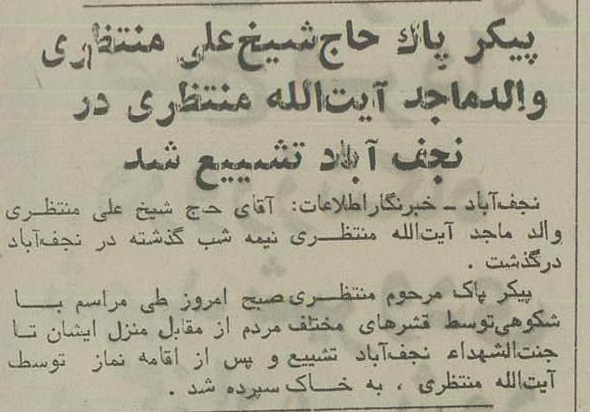 پیکر پاک حاج‌شیخ‌علی منتظری
والدماجد آیت‌الله منتظری در
نجف آباد تشییع شد
نجف‌آباد ـ خبرنگار اطلاعات: آقای حاج شیخ علی منتظری
والد ماجد آیت‌الله منتظری نیمه شب گذشته در نجف‌آباد
درگذشت .
پیکر پاک مرحوم منتظری صبح امروز طی مراسم با
شکوهی توسط قشرهای مختلف مردم از مقابل منزل ایشان تا
جنت‌الشهداء نجف‌آباد تشییع و پس از اقامه نماز توسط
آیت‌الله منتظری ، به خاک سپرده شد .